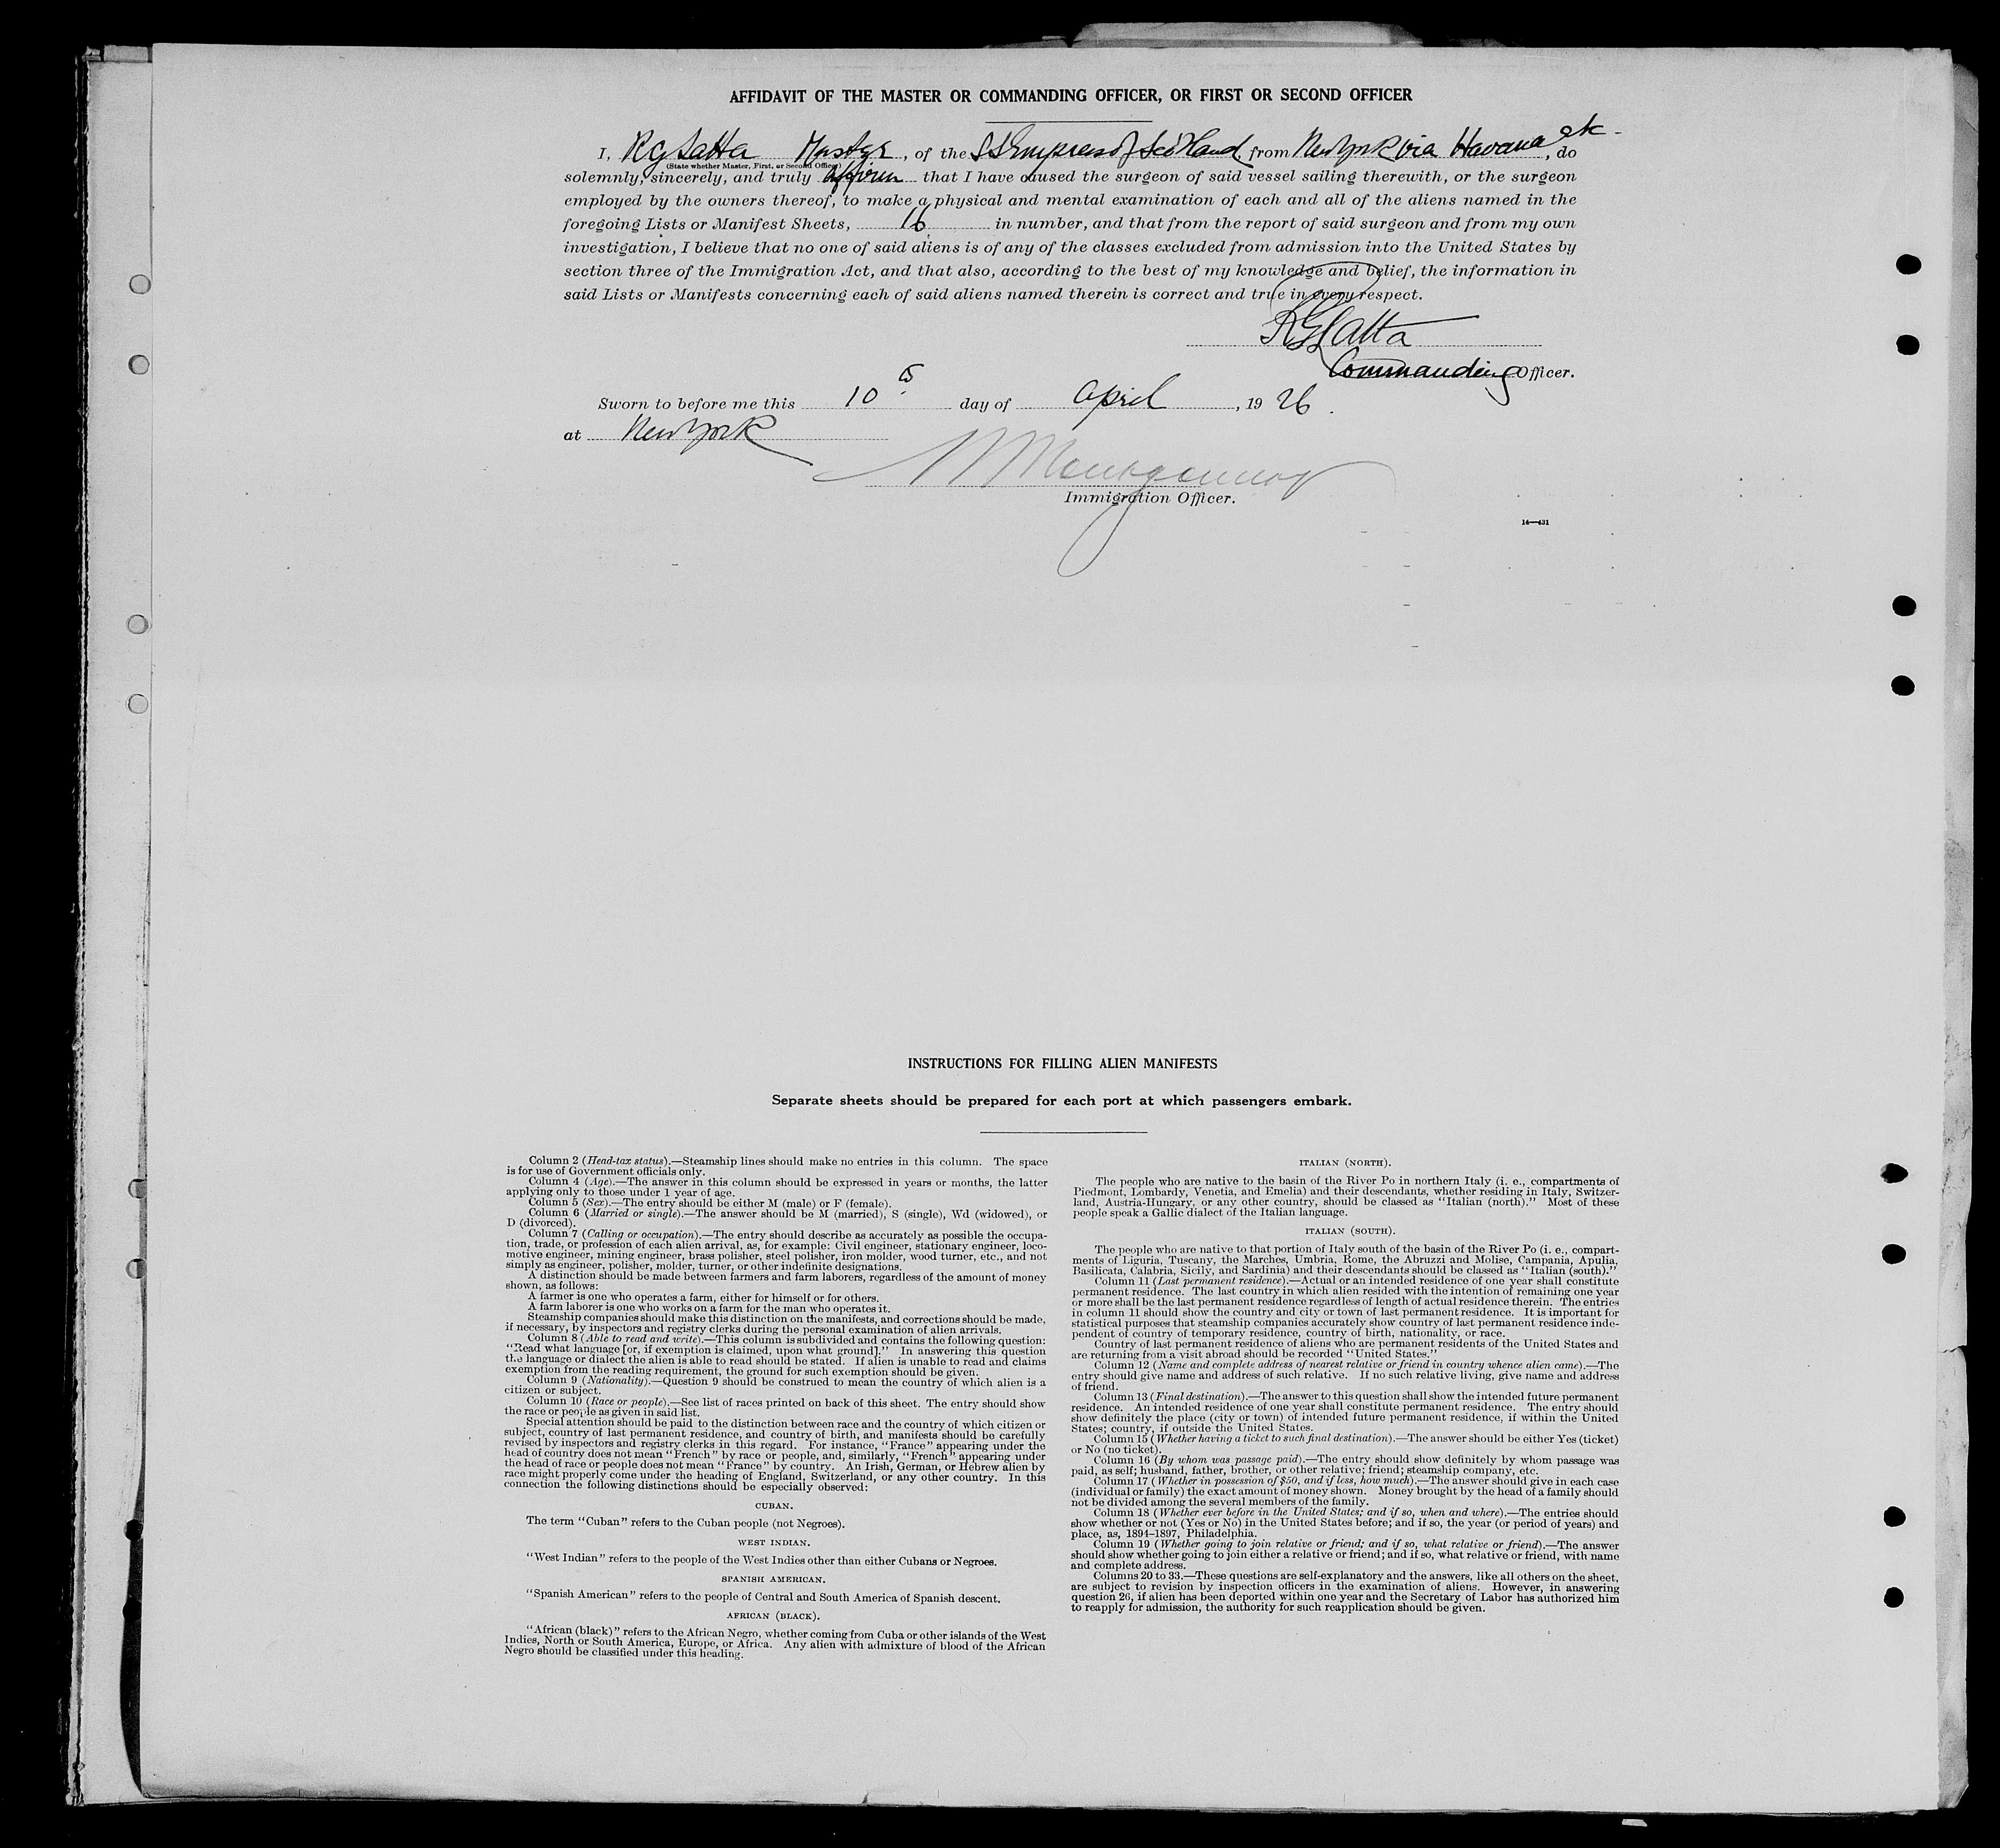 AFFIDAVIT OF THE MASTER OR COMMANDING OFFICER, OR FIRST OR SECOND OFFICER
I, R G Latta Master, of the SS Empress of Scotland, from New York via Havana etc, do
(State whether Master, First, or Second Officer)
solemnly, sincerely, and truly affirm that I have caused the surgeon of said vessel sailing therewith, or the surgeon
employed by the owners thereof, to make a physical and mental examination of each and all of the aliens named in the
foregoing Lists or Manifest Sheets, 16 in number, and that from the report of said surgeon and from my own
investigation, I believe that no one of said aliens is of any of the classes excluded from admission into the United States by
section three of the Immigration Act, and that also, according to the best of my knowledge and belief, the information in
said Lists or Manifests concerning each of said aliens named therein is correct and true in every respect.
R G Latta
Commanding Officer.
Sworn to before me this 10 day of April, 1926.
at New York
Montgomery
Immigration Officer.
14—431
INSTRUCTIONS FOR FILLING ALIEN MANIFESTS
Separate sheets should be prepared for each port at which passengers embark.
Column 2 (Head-tax status).—Steamship lines should make no entries in this column. The space
is for use of Government officials only.
Column 4 (Age).—The answer in this column should be expressed in years or months, the latter
applying only to those under 1 year of age.
Column 5 (Sex).—The entry should be either M (male) or F (female).
Column 6 (Married or single).—The answer should be M (married), S (single), Wd (widowed), or
D (divorced).
Column 7 (Calling or occupation).—The entry should describe as accurately as possible the occupa-
tion, trade, or profession of each alien arrival, as, for example: Civil engineer, stationary engineer, loco-
motive engineer, mining engineer, brass polisher, steel polisher, iron molder, wood turner, etc., and not
simply as engineer, polisher, molder, turner, or other indefinite designations.
A distinction should be made between farmers and farm laborers, regardless of the amount of money
shown, as follows:
A farmer is one who operates a farm, either for himself or for others.
A farm laborer is one who works on a farm for the man who operates it.
Steamship companies should make this distinction on the manifests, and corrections should be made,
if necessary, by inspectors and registry clerks during the personal examination of alien arrivals.
Column 8 (Able to read and write).—This column is subdivided and contains the following question:
"Read what language [or, if exemption is claimed, upon what ground]." In answering this question
the language or dialect the alien is able to read should be stated. If alien is unable to read and claims
exemption from the reading requirement, the ground for such exemption should be given.
Column 9 (Nationality).—Question 9 should be construed to mean the country of which alien is a
citizen or subject.
Column 10 (Race or people).—See list of races printed on back of this sheet. The entry should show
the race or people as given in said list.
Special attention should be paid to the distinction between race and the country of which citizen or
subject, country of last permanent residence, and country of birth, and manifests should be carefully
revised by inspectors and registry clerks in this regard. For instance, "France" appearing under the
head of country does not mean "French" by race or people, and, similarly, "French" appearing under
the head of race or people does not mean "France" by country. An Irish, German, or Hebrew alien by
race might properly come under the heading of England, Switzerland, or any other country. In this
connection the following distinctions should be especially observed:
CUBAN.
The term "Cuban" refers to the Cuban people (not Negroes).
WEST INDIAN.
"West Indian" refers to the people of the West Indies other than either Cubans or Negroes.
SPANISH AMERICAN.
"Spanish American" refers to the people of Central and South America of Spanish descent.
AFRICAN (BLACK).
"African (black)" refers to the African Negro, whether coming from Cuba or other islands of the West
Indies, North or South America, Europe, or Africa. Any alien with admixture of blood of the African
Negro should be classified under this heading.
ITALIAN (NORTH).
The people who are native to the basin of the River Po in northern Italy (i. e., compartments of
Piedmont, Lombardy, Venetia, and Emelia) and their descendants, whether residing in Italy, Switzer-
land, Austria-Hungary, or any other country, should be classed as "Italian (north)." Most of these
people speak a Gallic dialect of the Italian language.
ITALIAN (SOUTH).
The people who are native to that portion of Italy south of the basin of the River Po (i. e., compart-
ments of Liguria, Tuscany, the Marches, Umbria, Rome, the Abruzzi and Molise, Campania, Apulia,
Basilicata, Calabria, Sicily, and Sardinia) and their descendants should be classed as "Italian (south)."
Column 11 (Last permanent residence).—Actual or an intended residence of one year shall constitute
permanent residence. The last country in which alien resided with the intention of remaining one year
or more shall be the last permanent residence regardless of length of actual residence therein. The entries
in column 11 should show the country and city or town of last permanent residence. It is important for
statistical purposes that steamship companies accurately show country of last permanent residence inde-
pendent of country of temporary residence, country of birth, nationality, or race.
Country of last permanent residence of aliens who are permanent residents of the United States and
are returning from a visit abroad should be recorded "United States."
Column 12 (Name and complete address of nearest relative or friend in country whence alien came).—The
entry should give name and address of such relative. If no such relative living, give name and address
of friend.
Column 13 (Final destination).—The answer to this question shall show the intended future permanent
residence. An intended residence of one year shall constitute permanent residence. The entry should
show definitely the place (city or town) of intended future permanent residence, if within the United
States; country, if outside the United States.
Column 15 (Whether having a ticket to such final destination).—The answer should be either Yes (ticket)
or No (no ticket).
Column 16 (By whom was passage paid).—The entry should show definitely by whom passage was
paid, as self; husband, father, brother, or other relative; friend; steamship company, etc.
Column 17 (Whether in possession of $50, and if less, how much).—The answer should give in each case
(individual or family) the exact amount of money shown. Money brought by the head of a family should
not be divided among the several members of the family.
Column 18 (Whether ever before in the United States; and if so, when and where).—The entries should
show whether or not (Yes or No) in the United States before; and if so, the year (or period of years) and
place, as, 1894-1897, Philadelphia.
Column 19 (Whether going to join relative or friend; and if so, what relative or friend).—The answer
should show whether going to join either a relative or friend; and if so, what relative or friend, with name
and complete address.
Columns 20 to 33.—These questions are self-explanatory and the answers, like all others on the sheet,
are subject to revision by inspection officers in the examination of aliens. However, in answering
question 26, if alien has been deported within one year and the Secretary of Labor has authorized him
to reapply for admission, the authority for such reapplication should be given.